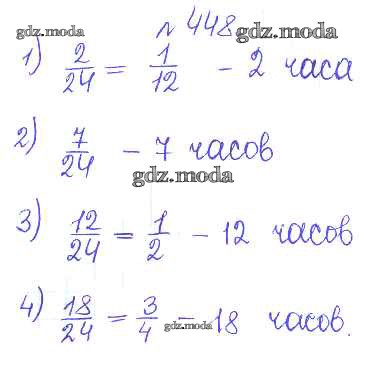 gdz.moda № 448 gdz.moda
1) 2/24 = 1/12 - 2 часа
2) 7/24 - 7 часов
gdz.moda
3) 12/24 = 1/2 - 12 часов
4) 18/24 = 3/4 gdz.moda - 18 часов.